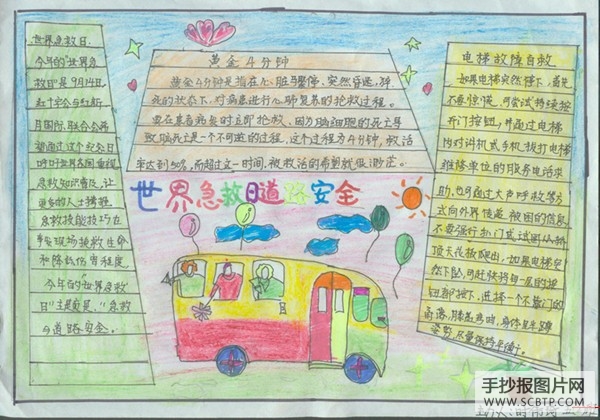 世界急救日
今年的“世界急
救日”是9月14日。
红十字会与红新
月国际联合会希
望通过这个纪念日
呼吁世界各国重视
急救知识普及，让
更多的人士掌握
急救技能技巧在
事发现场挽救生命
和降低伤害程度。
今年的世界急救
日”主题是，“急救
与道路安全。
黄金4分钟
黄金4分钟是指在心脏骤停，突然昏迷，猝
死的状态下，对病患进行心肺复苏的抢救过程。
要在患者病发时立即抢救，因为脑细胞的死亡导
致脑死亡是一个不可逆的过程，这个过程为4分钟，救活
率达到50%，而超过这一时间，被救活的希望就很渺茫。
世界急救日道路安全
电梯故障自救
如果电梯突然停下，首先
不要惊慌，可尝试持续按
开门按钮，并通过电梯
内对讲机或手机拨打电梯
维修单位的服务电话求
助，也可通过大声呼救等方
式向外界传递被困的信息
不要强行扒门或试图从轿
顶天花板爬出，如果电梯突
然下坠，可赶快将每一层的按
钮都按下，选择一个不靠门的
角落，膝盖弯曲，身体呈半蹲
姿势，尽量保持平衡。
手抄报图片网
WWW.SCBTP.COM